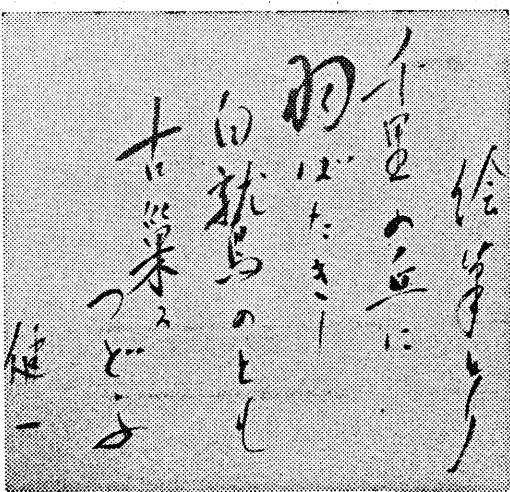 絵筆とり
千里の丘に
羽ばたきし
白鷲のとも
古巣に
つどふ
健一